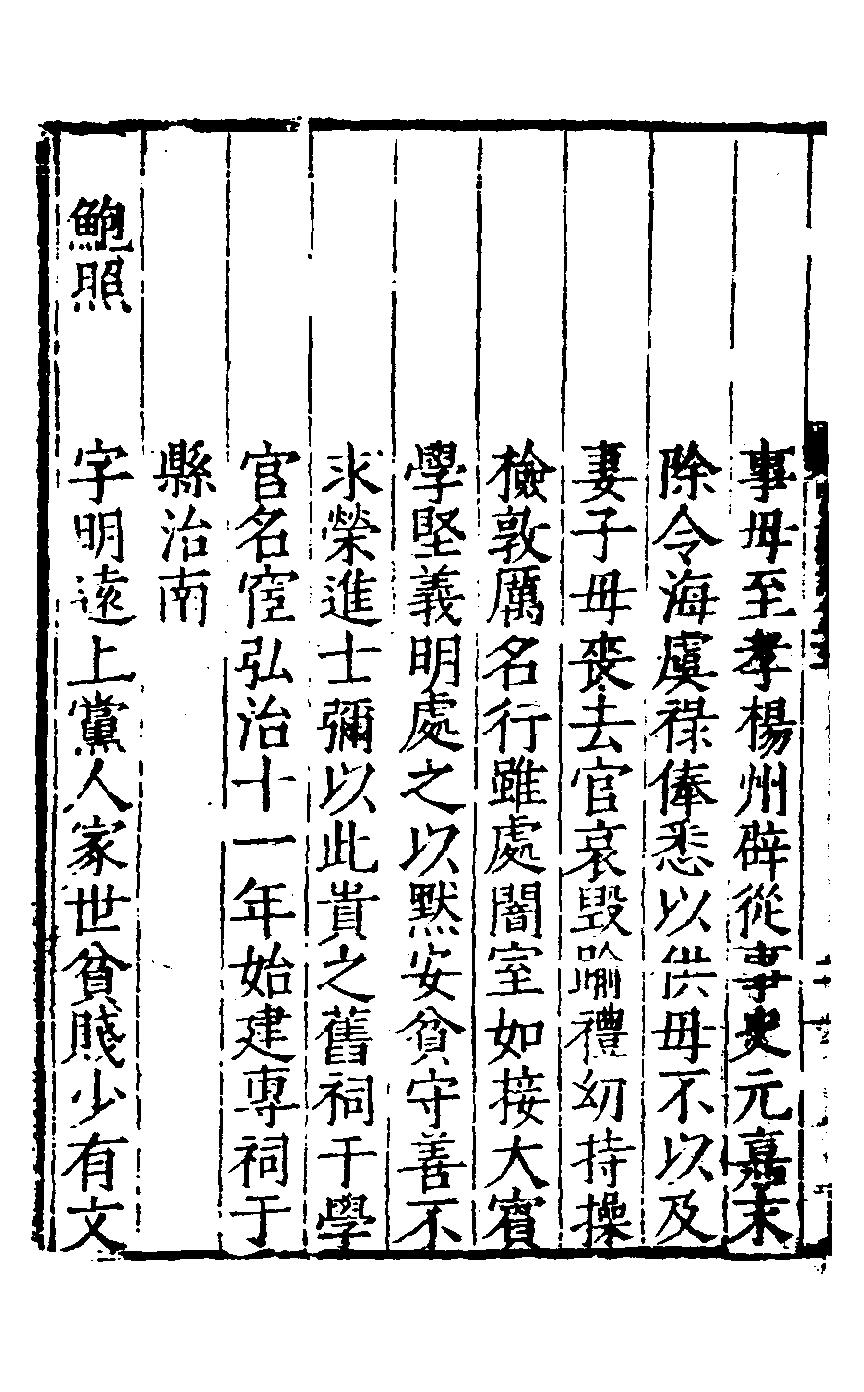 事母至孝楊州辟從事史元嘉末
除令海虞祿俸悉以供母不以及
妻子母喪去官哀毀踰禮幼持操
檢敦厲名行雖處闇室如接大賓
學堅義明處之以默安貧守善不
求榮進士彌以此貴之舊祠于學
官名宦弘治十一年始建專祠于
縣治南
鮑照　字明遠上黨人家世貧賤少有文